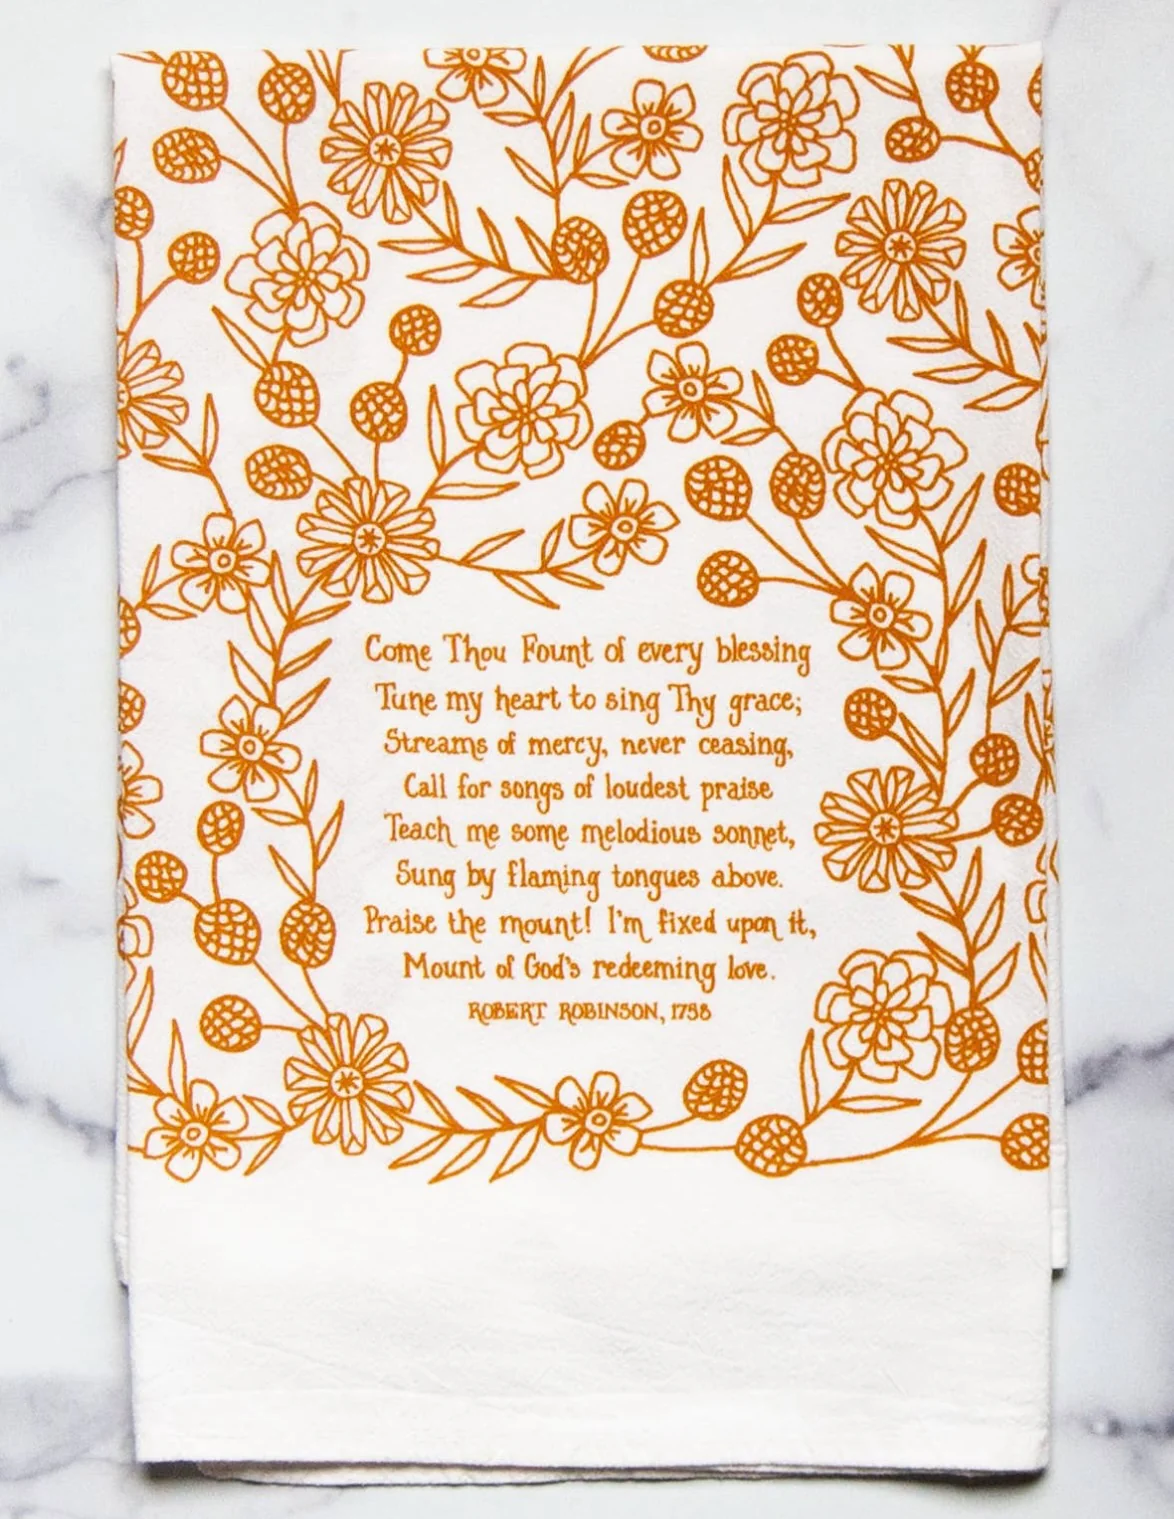 Come Thou Fount of every blessing
Tune my heart to sing Thy grace;
Streams of mercy, never ceasing,
Call for songs of loudest praise
Teach me some melodious sonnet,
Sung by flaming tongues above.
Praise the mount! I'm fixed upon it,
Mount of God's redeeming love.
ROBERT ROBINSON, 1758